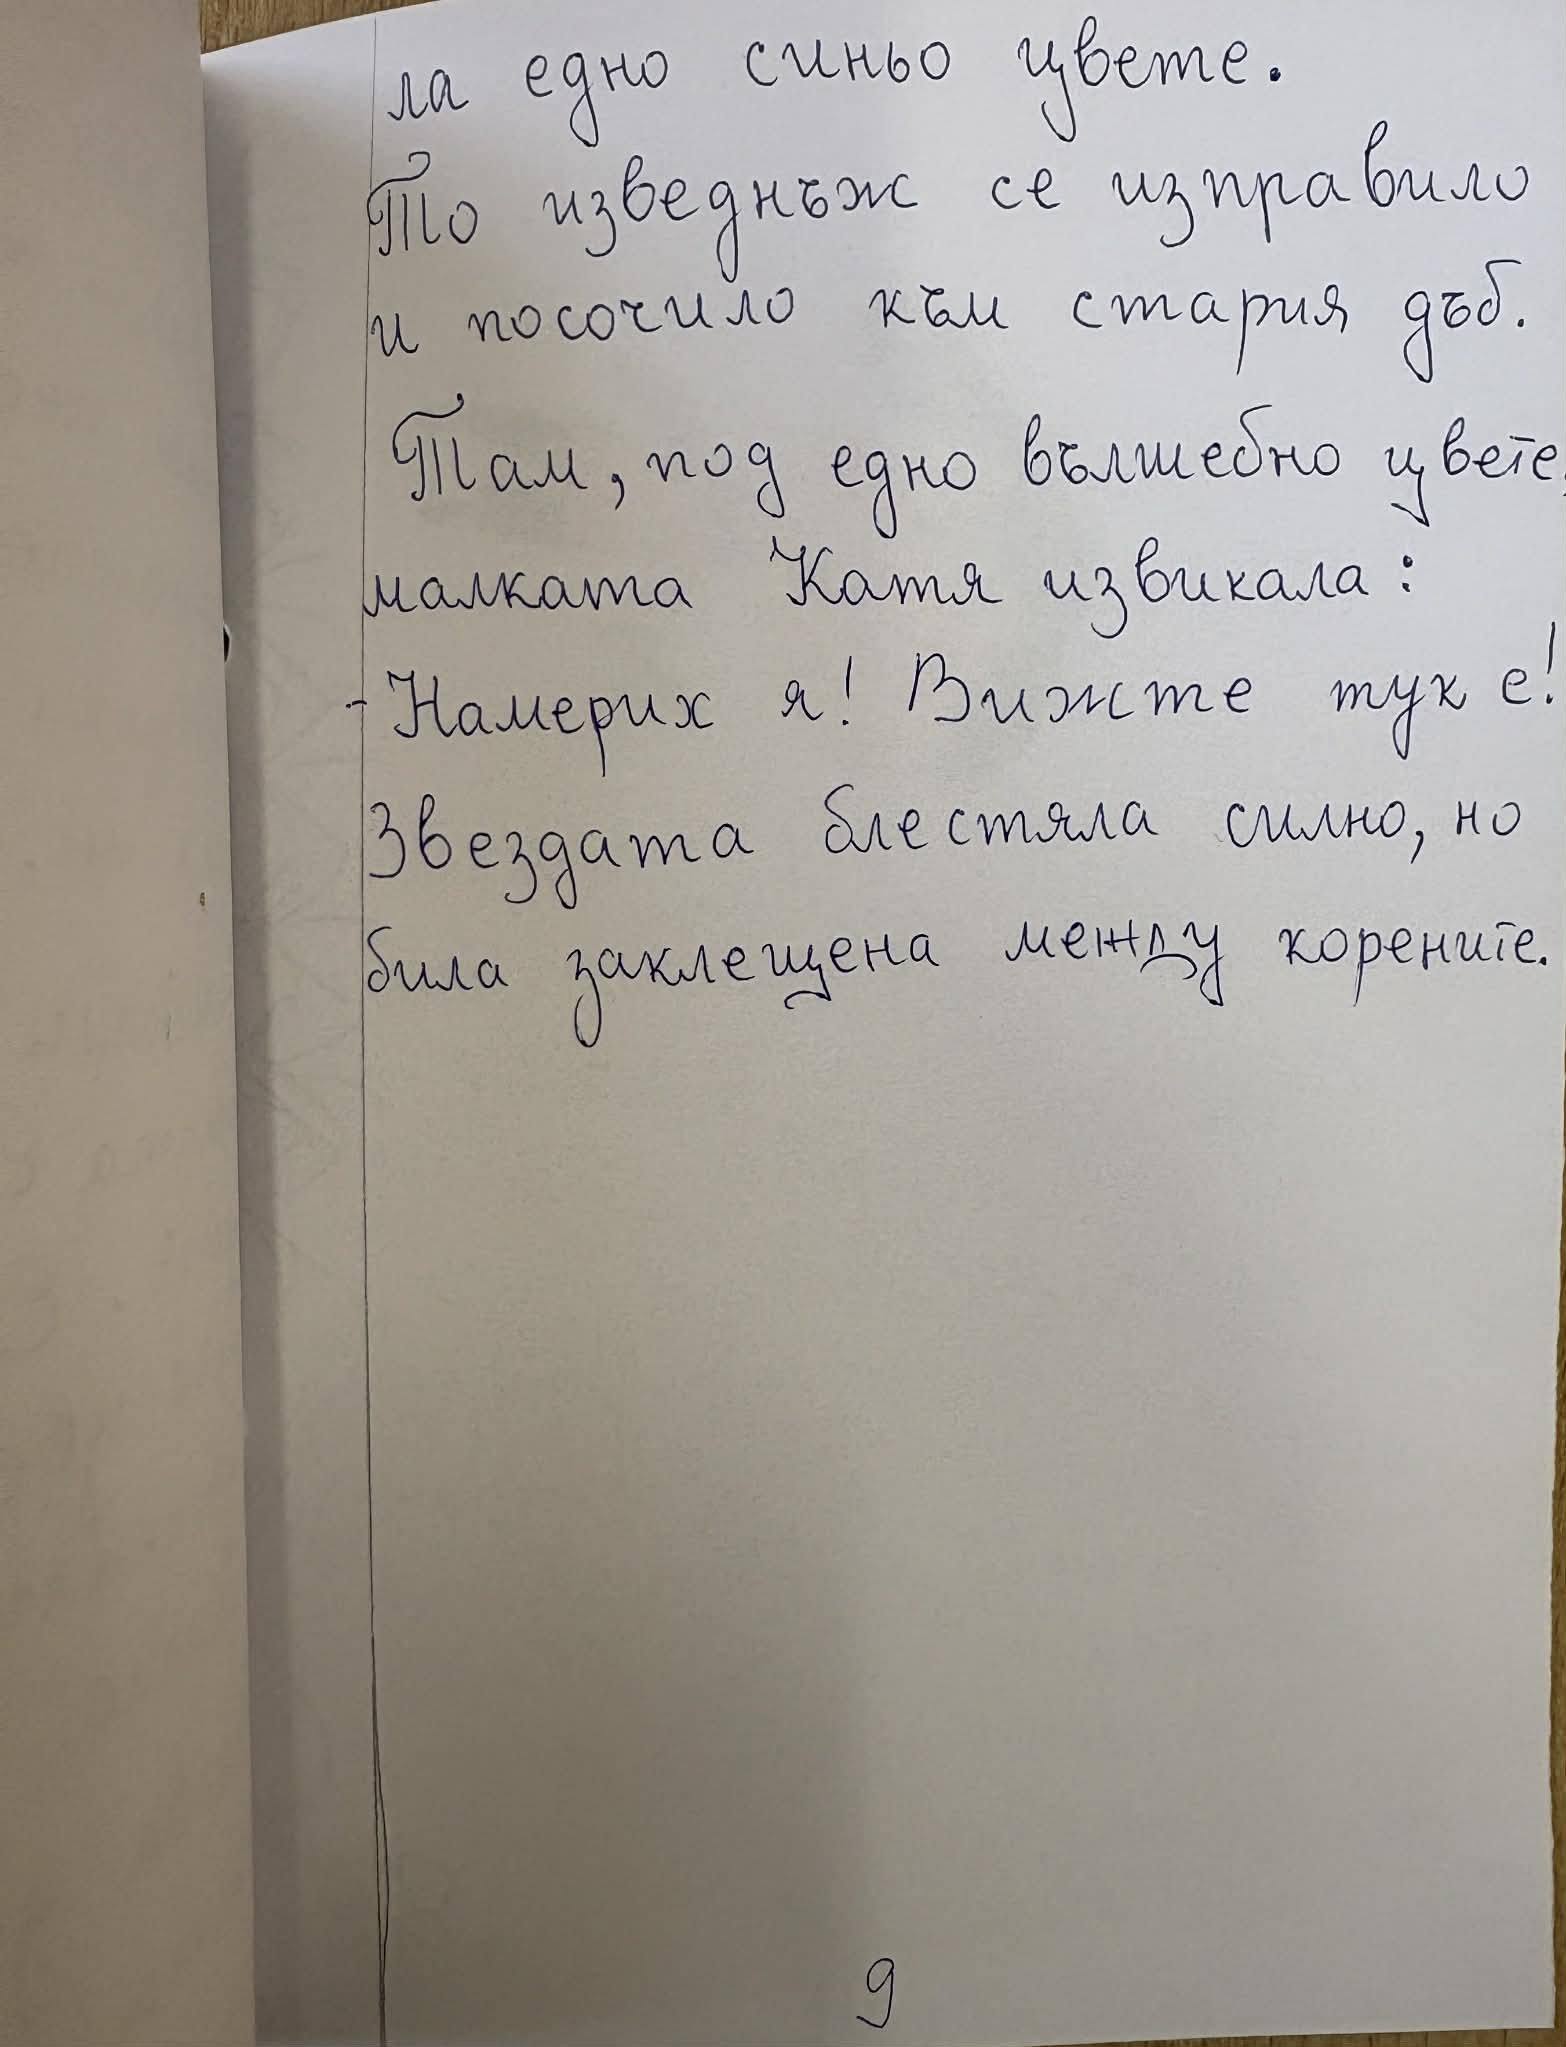 ла едно синьо цвете.
То изведнъж се изправило
и посочило към стария дъб.
Там, под едно вълшебно цвете,
малката Катя извикала:
- Намерих я! Вижте тук е!
Звездата блестяла силно, но
била заклещена между корените.
9